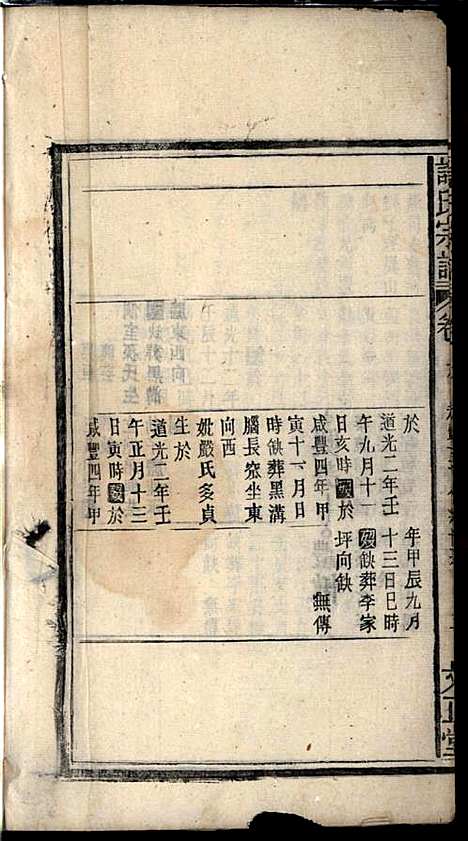 於
道光二年壬
午九月十一
日亥時歿於
咸豐四年甲
寅十一月日
時缺葬黑溝
腦長窊坐東
向西
妣嚴氏多貞
生於
道光二年壬
午正月十三
日寅時歿於
咸豐四年甲
年甲辰九月
十三日巳時
歿缺葬李家
坪向缺
無傳
氏宗譜
卷